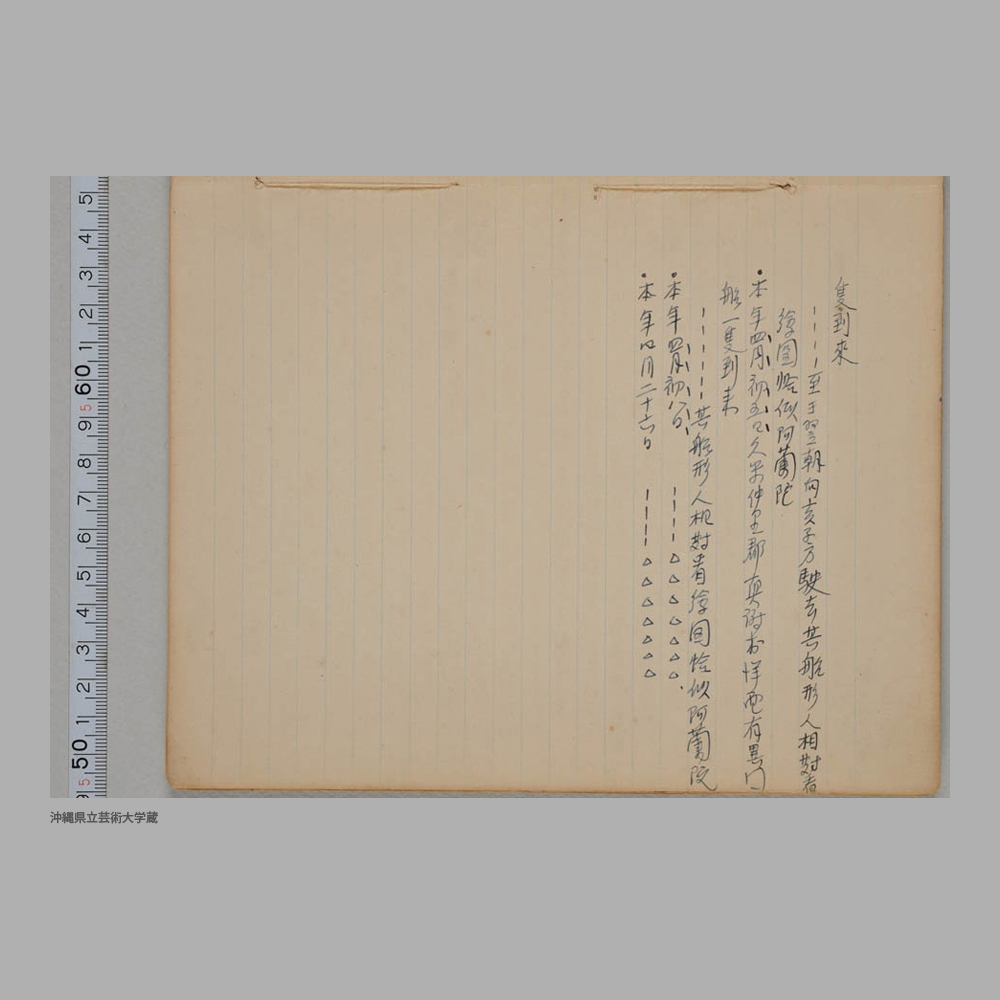 隻到來
｜｜｜｜至于翌朝向亥子方駛去其船形人相對看
繪圖恰似阿蘭陀
•本年四月初五日久米仲里郡真謝村洋面有異
船一隻到来
｜｜｜｜｜｜其船形人相對看繪圖恰似阿蘭陀
•本年四月初八日 ｜｜｜｜△△△△△△△.
•本年四月二十六日 ｜｜｜｜△△△△△△△
5 4 3 2 1 60 5 9 8 7 6 5 4 3 2 1 50 5
沖縄県立芸術大学蔵